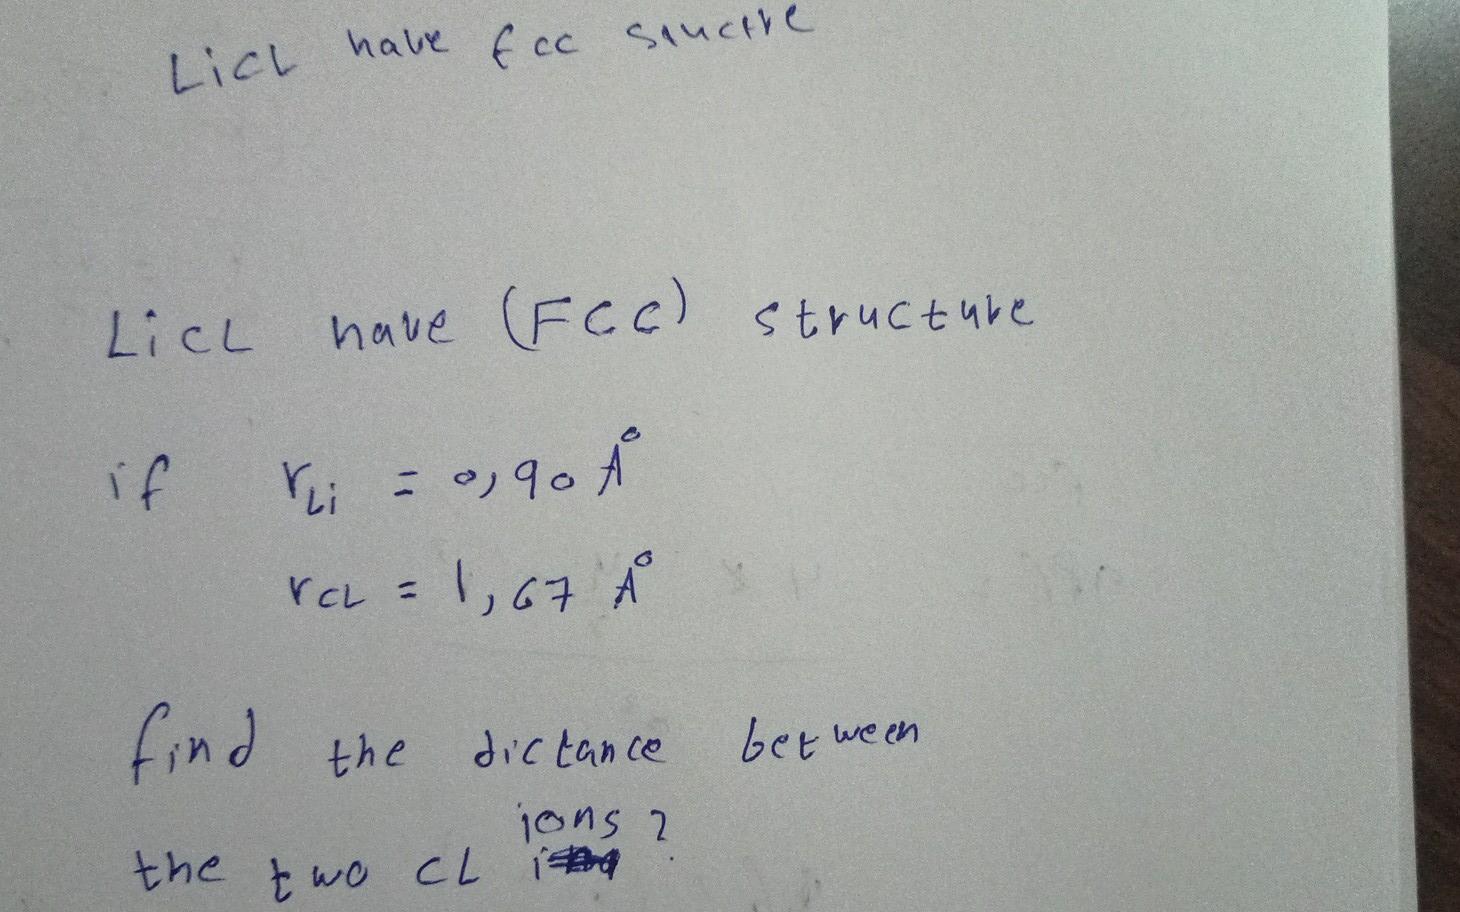 LiCL have fcc
LiCL have (FCC) structure
if rLi = 0,90 Å
rCL = 1,67 Å
find the dictance between
ions?
the two CL